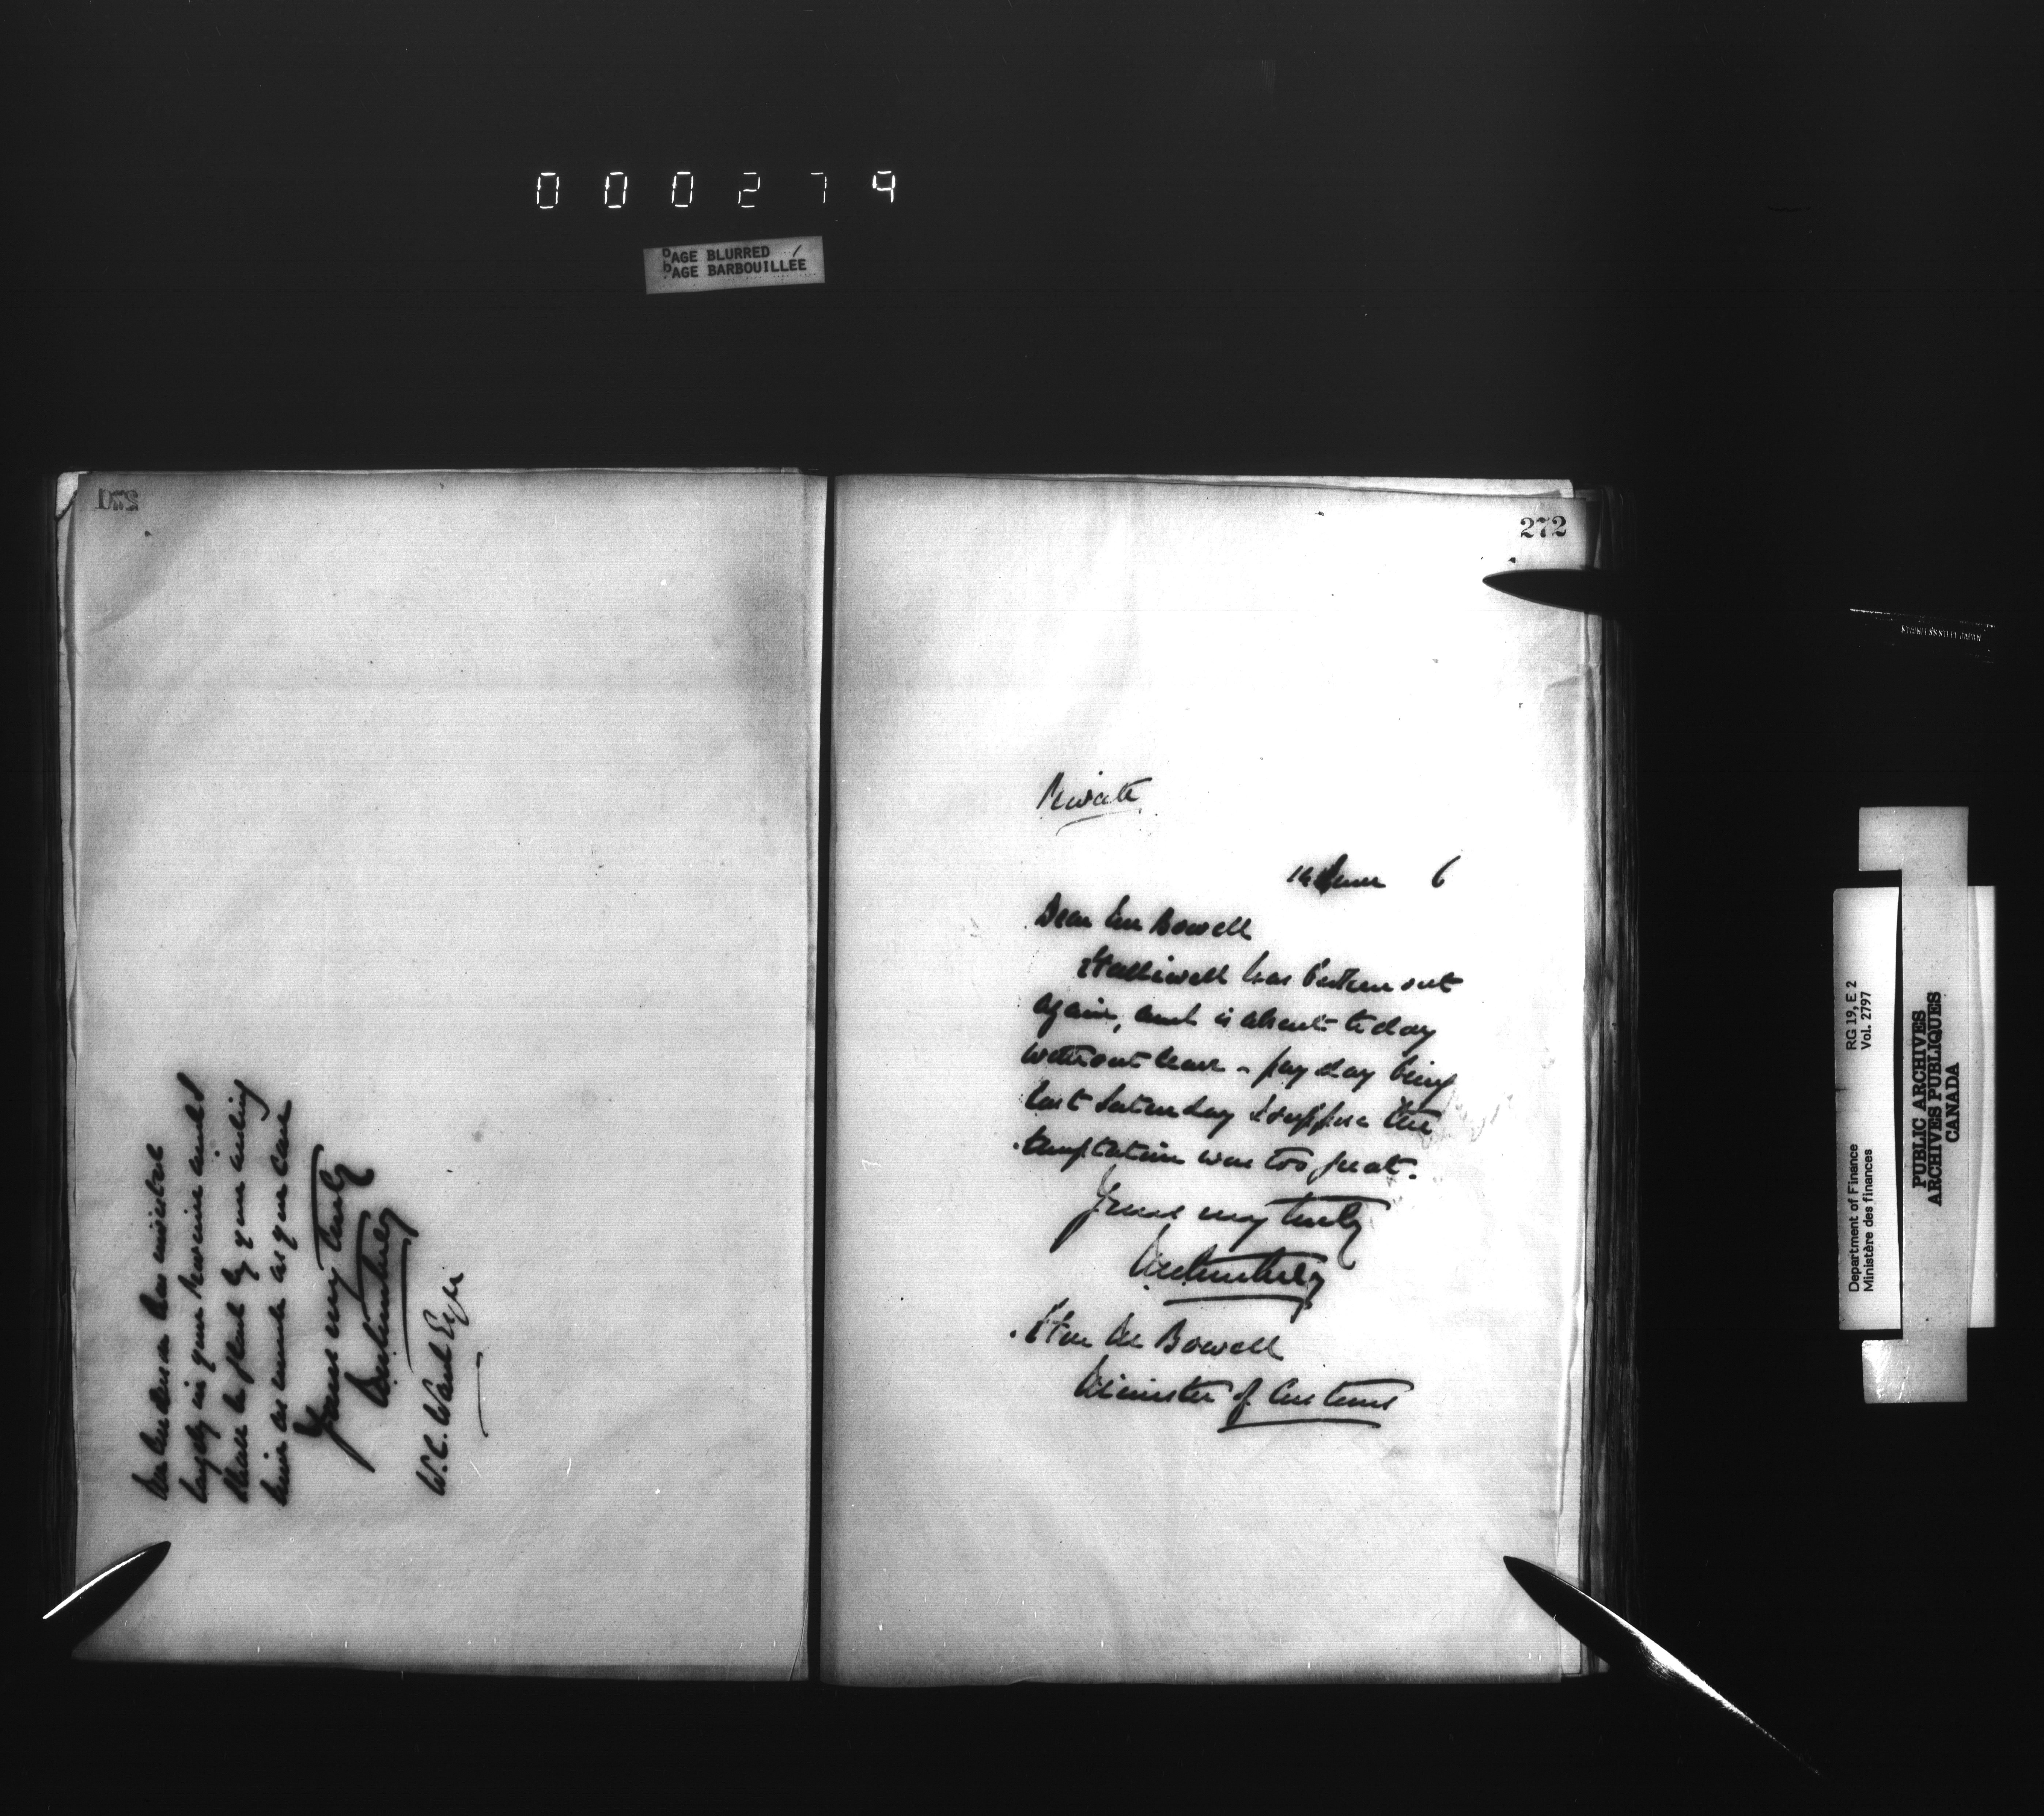 000279
PAGE BLURRED
PAGE BARBOUILLÉE
271
largely in your province and I
shall be glad by your aiding
him as much as you can
Yours very truly
W.C. Ward Esqre
272
Private
14 June 6
Dear Mr Bowell
Halliwell has broken out
again, and is absent to day
without leave - pay day being
last Saturday I suppose the
temptation was too great.
Yours very truly
Hon M Bowell
Minister of Customs
Department of Finance RG 19, E 2
Ministère des finances Vol. 2797
PUBLIC ARCHIVES
ARCHIVES PUBLIQUES
CANADA